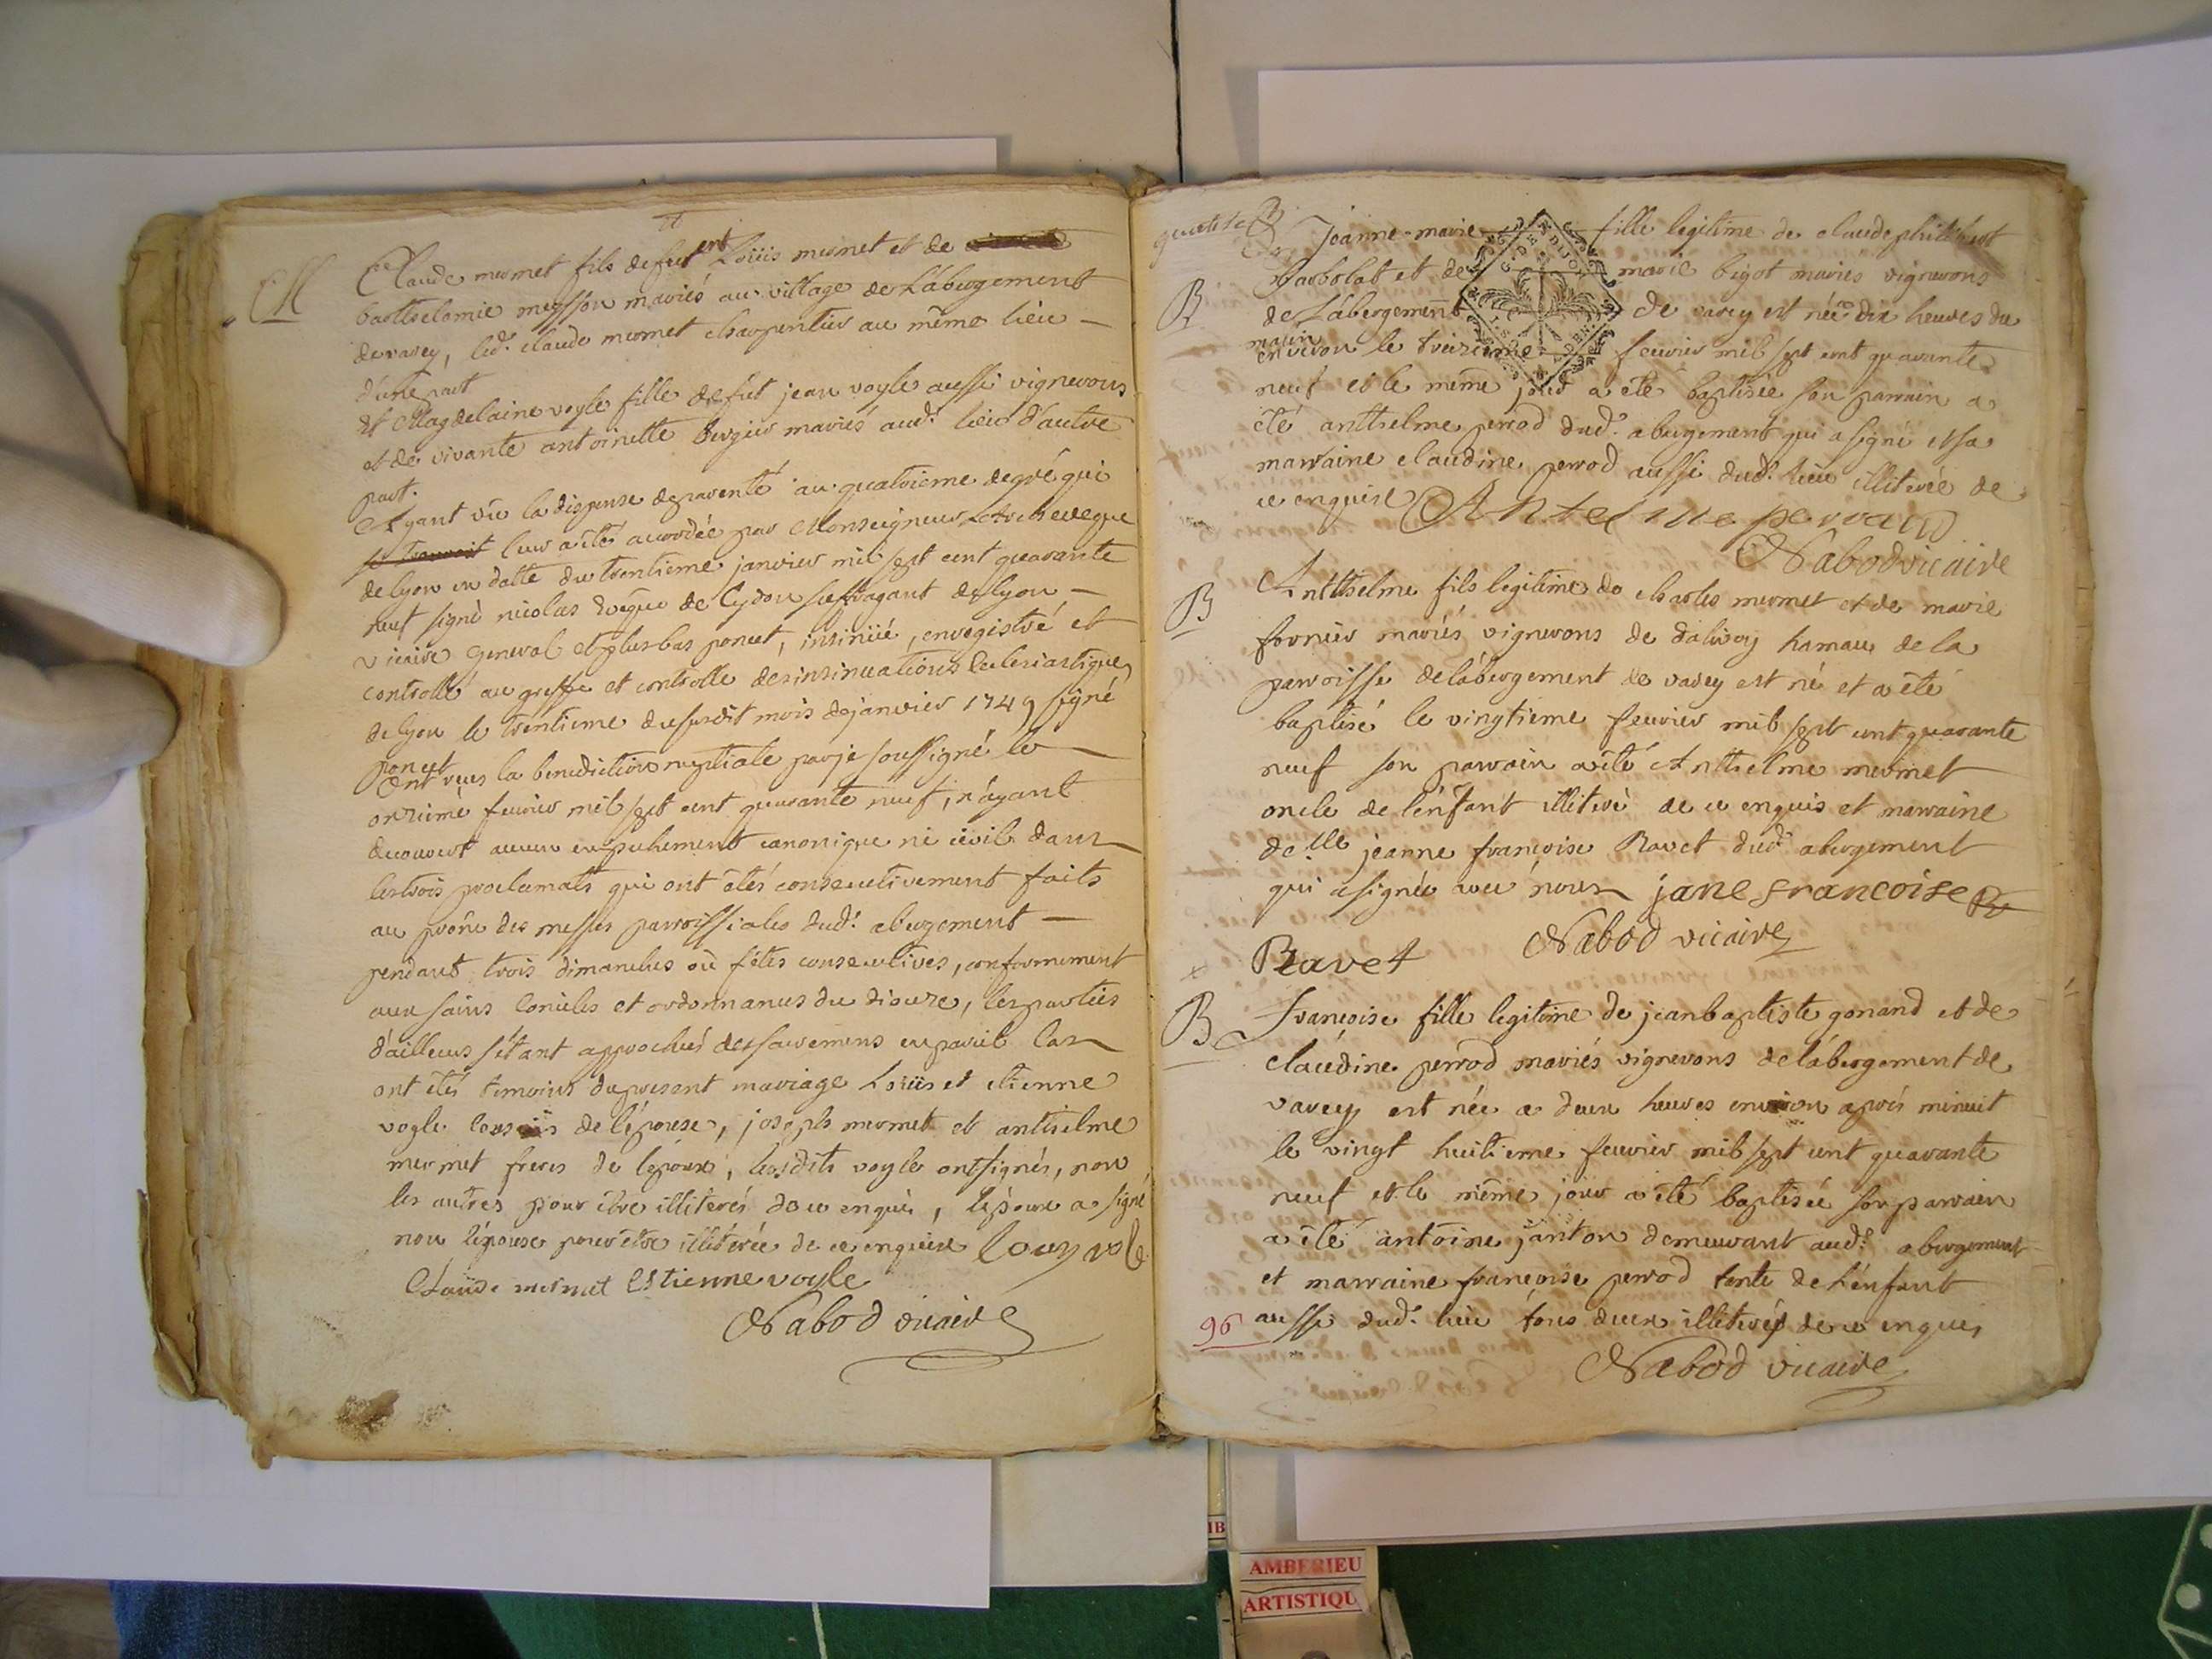 M
Claude mermet fils de feut Loüis mermet et de
barthelemie meysson mariés au village de Labergement
de varey, led. claude mermet charpentier au même lieu
d'une part
et Magdelaine vogle fille de fut jean vogle aussi vignerons
et de vivante antoinette bergier mariés aud. lieu d'autre
part.
Ayant vü la dispense de parenté au quatrieme degré qui
leur a été accordée par Monseigneur L'Archeveque
de lyon en datte du trentieme janvier mil sept cent quarante
neuf signé nicolas évêque de Cydon suffragant de lyon
vicaire general et plus bas poncet, insinüé, enregistré et
controllé au greffe et controlle des insinuations Ecclesiastiques
de lyon le trentieme du susdit mois de janvier 1749 signé
poncet
ont reçus la benediction nuptiale par je soussigné le
onzieme feurier mil sept cent quarante neuf, n'ayant
decouvert aucun empechement canonique ni civil dans
les trois proclamats qui ont étés consecutivement faits
au prône des messes parroissiales dud. abergement
pendant trois dimanches où fêtes consecutives, conformement
aux sains Conciles et ordonnances du diocese, les parties
d'ailleurs s'étant approchés des sacremens en pareil cas
ont étés temoins du present mariage Loüis et etienne
vogle cousins de l'épouse, joseph mermet et anthelme
mermet freres de lepoux, lesdits vogle ont signés, non
les autres pour être illiterés de ce enquis, l'époux a signé
non l'épouse pour etre illiterée de ce enquise louy vole
Claude mermet Estienne vogle
Nabod vicaire
B Jeanne-marie fille legitime de claude philibert
barbolat et de marie bigot mariés vignerons
de Labergement de varey est née a dix heures du
matin
environ le treizieme feurier mil sept cent quarante
neuf et le même jour a été baptisée son parrain a
été anthelme perrod dud. abergement qui a signé et sa
marraine claudine perrod aussi dud. lieu illiterée de
ce enquise Antelme perrod
Nabod vicaire
B Anthelme fils legitime de charles mermet et de marie
fornier mariés vignerons de dalivoy hamau de la
parroisse de l'abergement de varey est né et a été
baptisé le vingtieme feurier mil sept cent quarante
neuf son parrain a été Anthelme mermet
oncle de l'énfant illiteré de ce enquis et marraine
de.lle jeanne françoise Ravet dud. abergement
qui a signée avec nous jane francoise
Ravet Nabod vicaire
B Françoise fille legitime de jean baptiste gonand et de
claudine perrod mariés vignerons de l'abergement de
varey est née a deux heures environ aprés minuit
le vingt huitieme feurier mil sept cent quarante
neuf et le même jour a été baptisée son parrain
a été antoine janton demeurant aud. abergement
et marraine françoise perrod tante de l'énfant
aussi dud. lieu tous deux illiterés de ce enquis
96
Nabod vicaire
AMBERIEU
ARTISTIQU